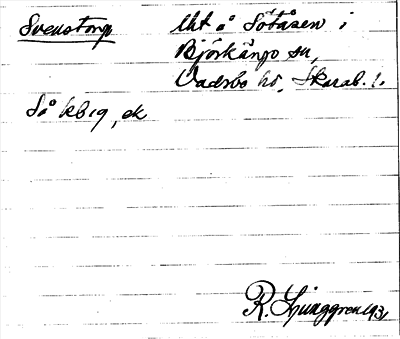 Svenstorp Uht å Sötåsen i
Björkängs sn,
Vadsbo hd, Skarab. l.
Så kbig, ek
R. Ljunggren 1931